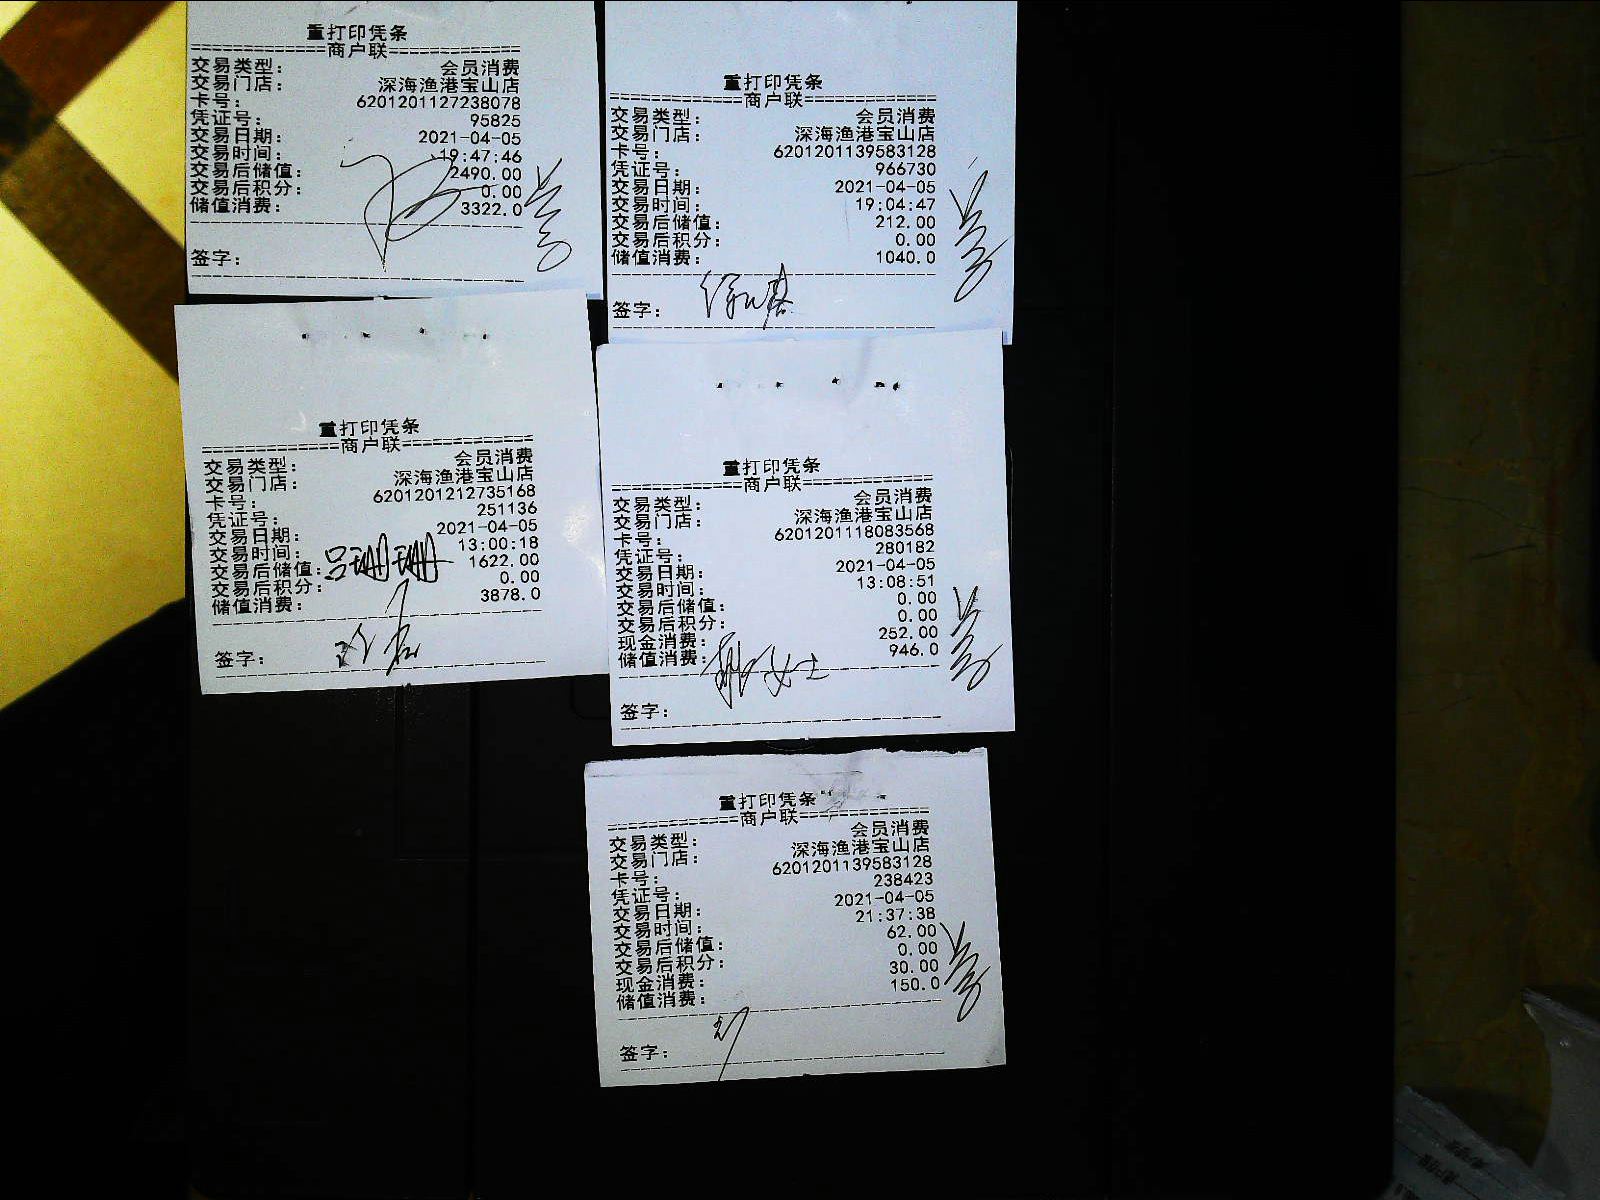 重打印凭条
============商户联============
交易类型: 会员消费
交易门店: 深海渔港宝山店
卡号: 6201201127238078
凭证号: 95825
交易日期: 2021-04-05
交易时间: 19:47:46
交易后储值: 2490.00
交易后积分: 0.00
储值消费: 3322.0
签字:
重打印凭条
============商户联============
交易类型: 会员消费
交易门店: 深海渔港宝山店
卡号: 6201201139583128
凭证号: 966730
交易日期: 2021-04-05
交易时间: 19:04:47
交易后储值: 212.00
交易后积分: 0.00
储值消费: 1040.0
签字:
重打印凭条
============商户联============
交易类型: 会员消费
交易门店: 深海渔港宝山店
卡号: 6201201212735168
凭证号: 251136
交易日期: 2021-04-05
交易时间: 13:00:18
交易后储值: 吕珊珊 1622.00
交易后积分: 0.00
储值消费: 3878.0
签字:
重打印凭条
============商户联============
交易类型: 会员消费
交易门店: 深海渔港宝山店
卡号: 6201201118083568
凭证号: 280182
交易日期: 2021-04-05
交易时间: 13:08:51
交易后储值: 0.00
交易后积分: 0.00
现金消费: 252.00
储值消费: 946.0
女士
签字:
重打印凭条
============商户联============
交易类型: 会员消费
交易门店: 深海渔港宝山店
卡号: 6201201139583128
凭证号: 238423
交易日期: 2021-04-05
交易时间: 21:37:38
交易后储值: 62.00
交易后积分: 0.00
现金消费: 30.00
储值消费: 150.0
签字: